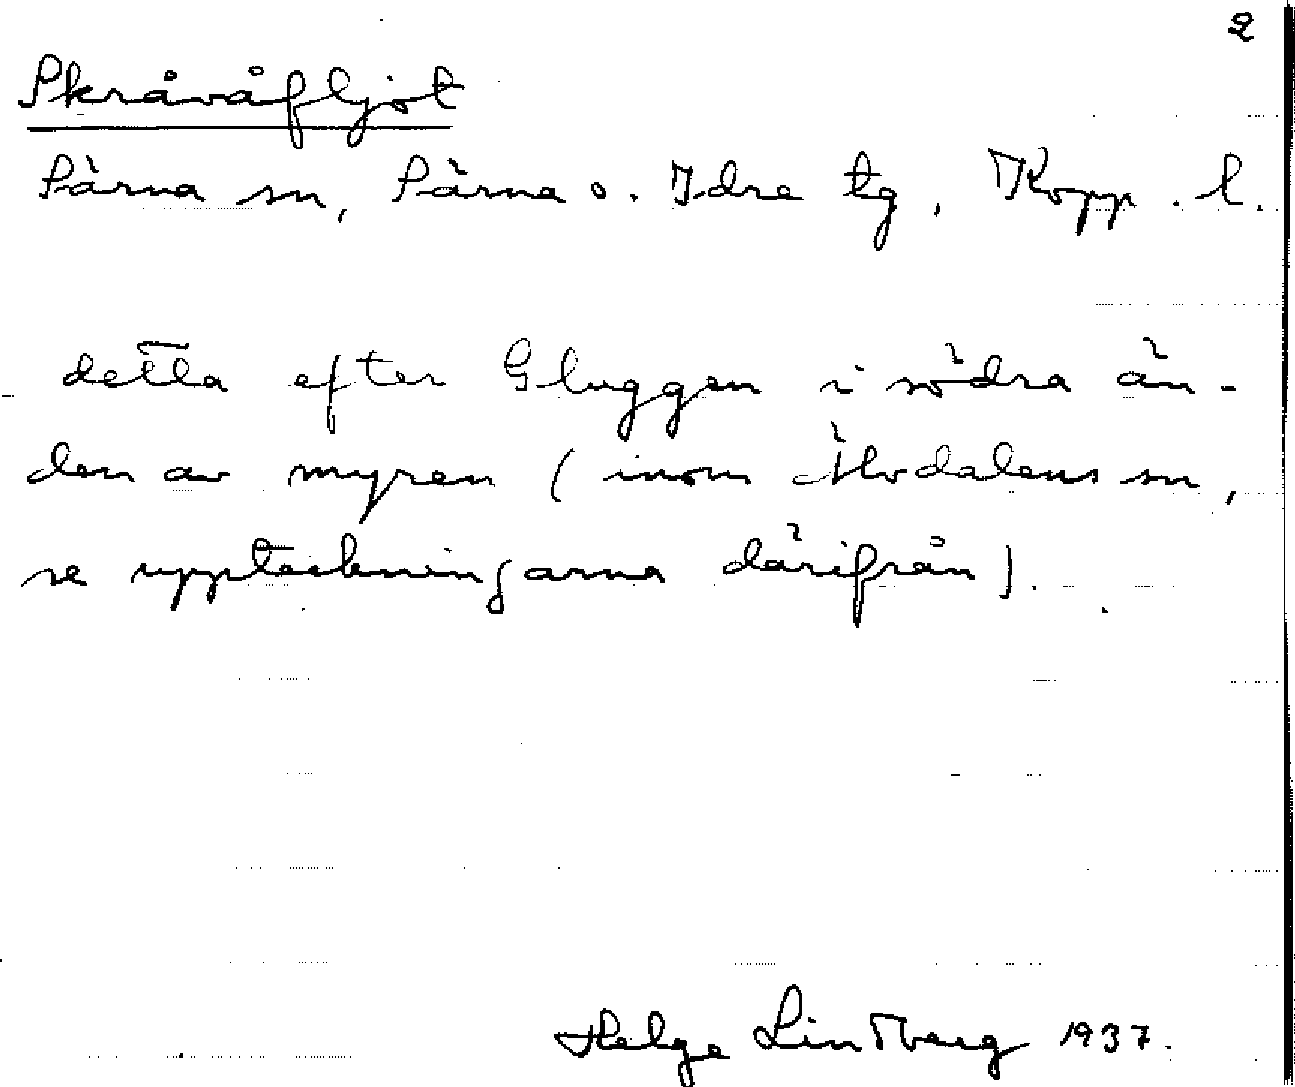 2
Skråvåfljot
Särna sn, Särna o. Idre tg, Kopp. l.
detta efter Gluggen i södra än-
den av myren (inom Älvdalens sn,
se uppteckningarna därifrån).
Helge Lindberg 1937.